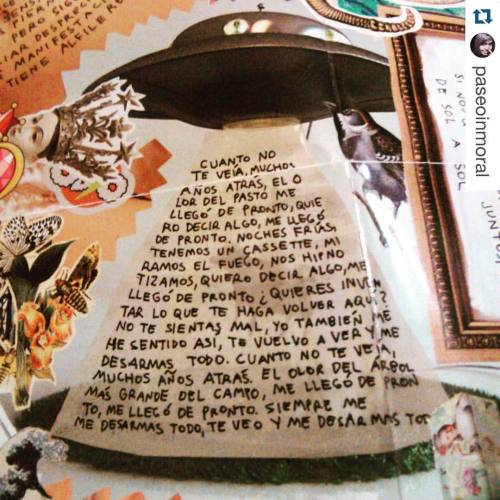 PERO FIR
IAR DESPAC
MANIFIESTA
TIENE ALFILE
CUANTO NO
TE VEÍA, MUCHOS
AÑOS ATRÁS, EL O
LOR DEL PASTO ME
LLEGÓ DE PRONTO, QUIE
RO DECIR ALGO, ME LLEGÓ
DE PRONTO. NOCHES FRÍAS,
TENEMOS UN CASSETTE, MI
RAMOS EL FUEGO, NOS HIPNO
TIZAMOS, QUIERO DECIR ALGO, ME
LLEGÓ DE PRONTO ¿QUIERES INVEN
TAR LO QUE TE HAGA VOLVER AQUÍ?
NO TE SIENTAS MAL, YO TAMBIÉN ME
HE SENTIDO ASÍ, TE VUELVO A VER Y ME
DESARMAS TODO. CUANTO NO TE VEÍA,
MUCHOS AÑOS ATRÁS. EL OLOR DEL ÁRBOL
MÁS GRANDE DEL CAMPO, ME LLEGÓ DE PRON
TO, ME LLEGÓ DE PRONTO. SIEMPRE ME
ME DESARMAS TODO, TE VEO Y ME DESARMAS TOD
SI NO
DE SOL A SOL
JUNTOS
paseoinmoral